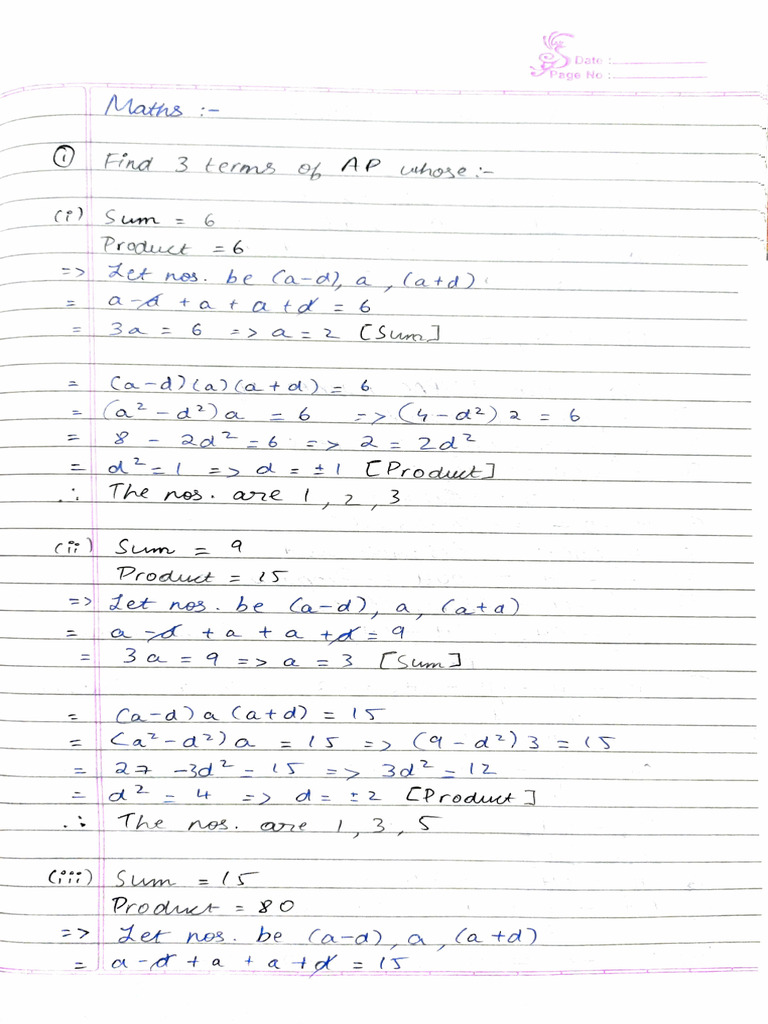 Date :
Page No :
Maths :-
① Find 3 terms of AP whose:-
(i) Sum = 6
Product = 6
=> Let nos. be (a-d), a, (a+d)
= a-d + a + a+d = 6
= 3a = 6 => a = 2 [Sum]
= (a-d)(a)(a+d) = 6
= (a² - d²)a = 6 => (4-d²)2 = 6
= 8 - 2d² = 6 => 2 = 2d²
= d² = 1 => d = ±1 [Product]
∴ The nos. are 1, 2, 3
(ii) Sum = 9
Product = 15
=> Let nos. be (a-d), a, (a+d)
= a-d + a + a+d = 9
= 3a = 9 => a = 3 [Sum]
= (a-d) a (a+d) = 15
= (a² - d²)a = 15 => (9-d²)3 = 15
= 27 -3d² = 15 => 3d² = 12
= d² = 4 => d = ±2 [Product]
∴ The nos. are 1, 3, 5
(iii) Sum = 15
Product = 80
=> Let nos. be (a-d), a, (a+d)
= a-d + a + a+d = 15